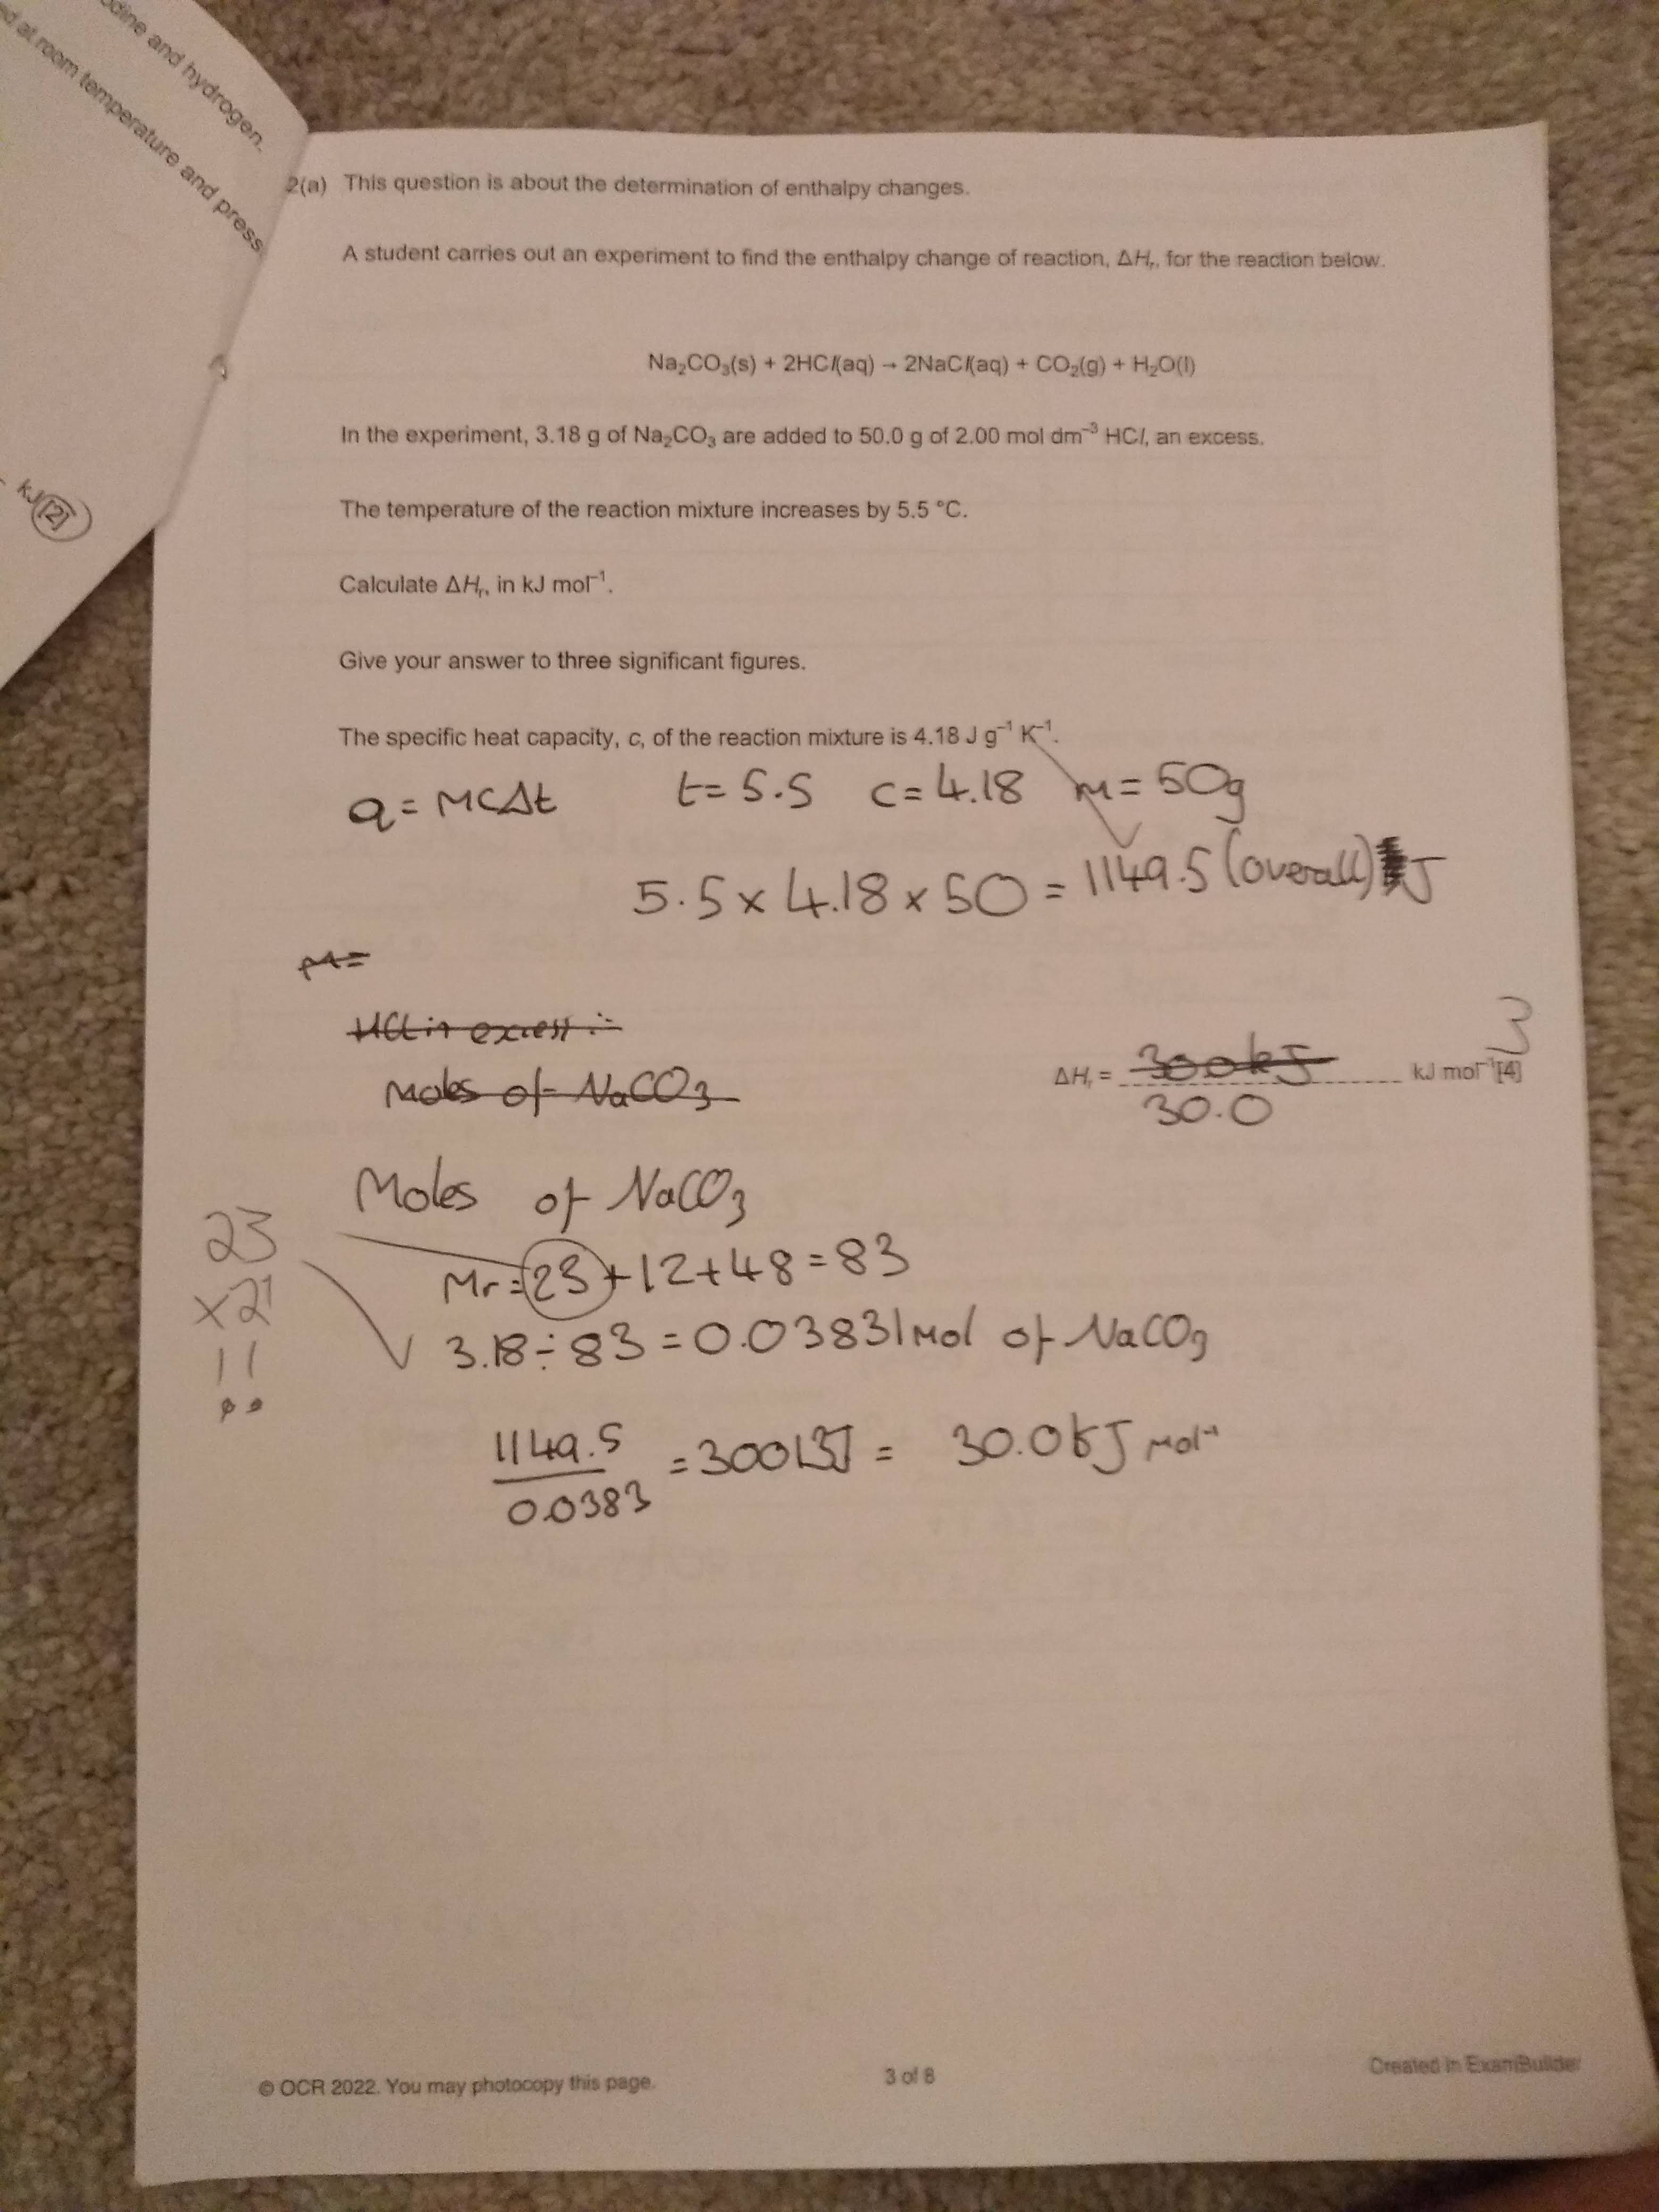 odine and hydrogen.
ed at room temperature and press
kJ [2]
2(a) This question is about the determination of enthalpy changes.
A student carries out an experiment to find the enthalpy change of reaction, ΔHᵣ, for the reaction below.
Na₂CO₃(s) + 2HCl(aq) → 2NaCl(aq) + CO₂(g) + H₂O(l)
In the experiment, 3.18 g of Na₂CO₃ are added to 50.0 g of 2.00 mol dm⁻³ HCl, an excess.
The temperature of the reaction mixture increases by 5.5 °C.
Calculate ΔHᵣ, in kJ mol⁻¹.
Give your answer to three significant figures.
The specific heat capacity, c, of the reaction mixture is 4.18 J g⁻¹ K⁻¹.
q = MCΔt t = 5.5 c = 4.18 m = 50g
5.5 × 4.18 × 50 = 1149.5 (overall) J
M=
HCl in excess ∴
Moles of NaCO₃
3
ΔHᵣ = 300kJ kJ mol⁻¹[4]
30.0
Moles of NaCO₃
23
Mr = 23 + 12 + 48 = 83
×2!
3.18 ÷ 83 = 0.03831 mol of NaCO₃
!!
1149.5
= 30013J = 30.0kJ mol⁻¹
0.0383
© OCR 2022. You may photocopy this page.
3 of 8
Created in ExamBuilder